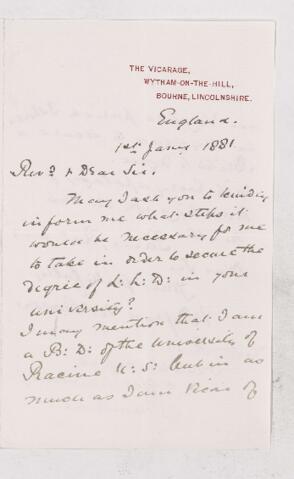 THE VICARAGE,
WYTHAM-ON-THE-HILL,
BOURNE, LINCOLNSHIRE.
England.
1st Jany 1881
Revd & Dear Sir,
May I ask you to kindly
inform me what steps it
would be necessary for me
to take in order to secure the
degree of L: L: D: in your
University?
I may mention that I am
a B: D: of the University of
Racine U: S: but in as
much as I am Vicar of